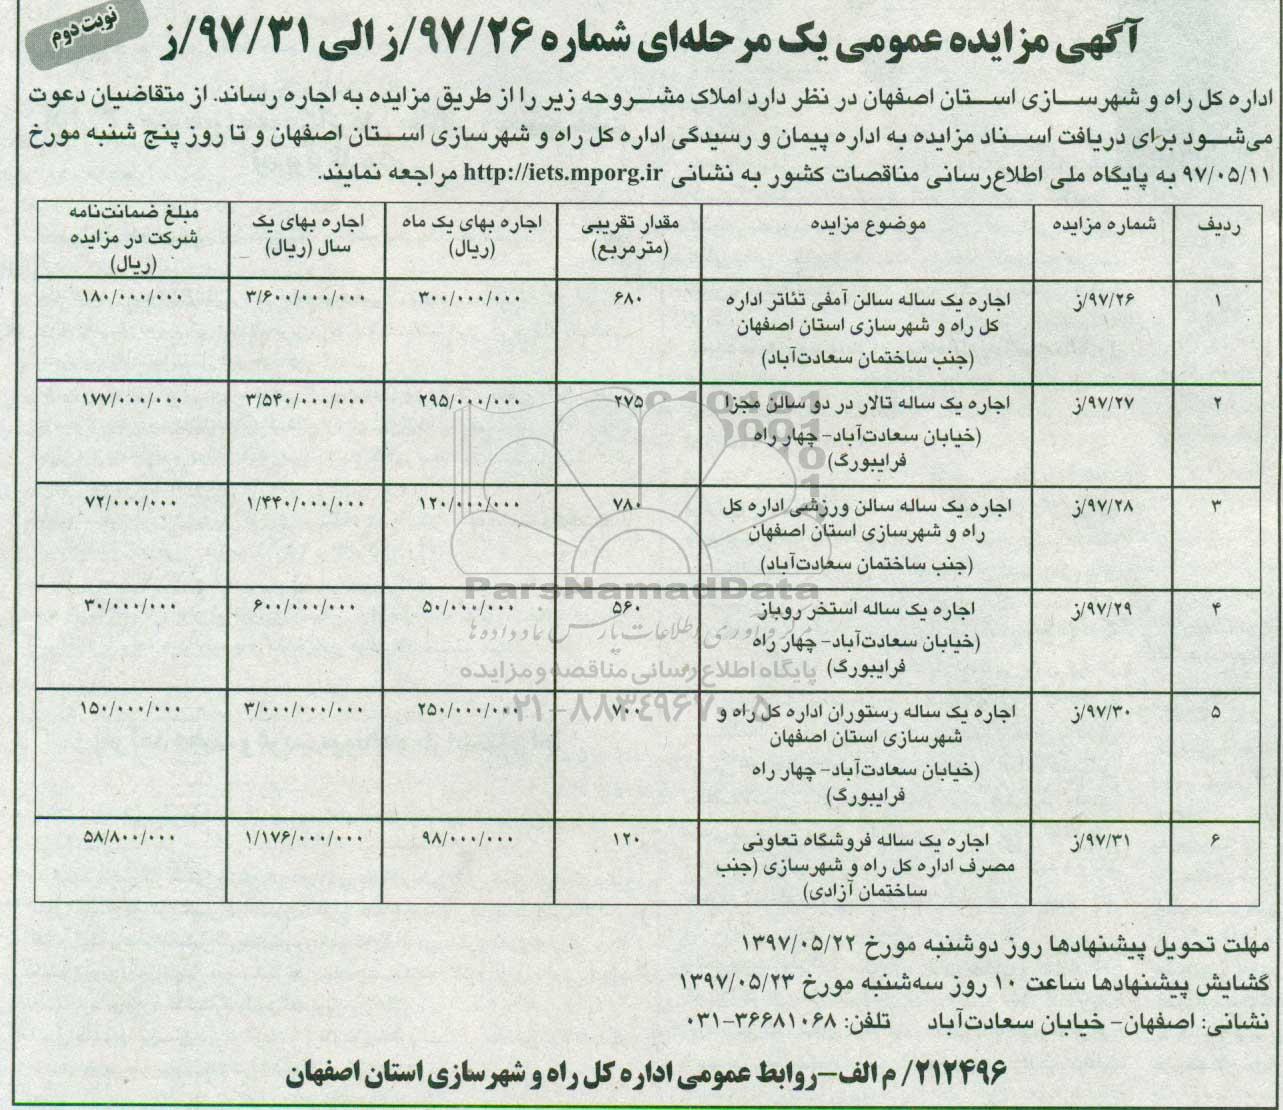 نوبت دوم
آگهی مزایده عمومی یک مرحله‌ای شماره ۹۷/۲۶/ز الی ۹۷/۳۱/ز
اداره کل راه و شهرسازی استان اصفهان در نظر دارد املاک مشروحه زیر را از طریق مزایده به اجاره رساند. از متقاضیان دعوت
می‌شود برای دریافت اسناد مزایده به اداره پیمان و رسیدگی اداره کل راه و شهرسازی استان اصفهان و تا روز پنج شنبه مورخ
۹۷/۰۵/۱۱ به پایگاه ملی اطلاع‌رسانی مناقصات کشور به نشانی http://iets.mporg.ir مراجعه نمایند.
ردیف | شماره مزایده | موضوع مزایده | مقدار تقریبی (مترمربع) | اجاره بهای یک ماه (ریال) | اجاره بهای یک سال (ریال) | مبلغ ضمانت‌نامه شرکت در مزایده (ریال)
۱ | ۹۷/۲۶/ز | اجاره یک ساله سالن آمفی تئاتر اداره | ۶۸۰ | ۳۰۰/۰۰۰/۰۰۰ | ۳/۶۰۰/۰۰۰/۰۰۰ | ۱۸۰/۰۰۰/۰۰۰
کل راه و شهرسازی استان اصفهان
(جنب ساختمان سعادت‌آباد)
۲ | ۹۷/۲۷/ز | اجاره یک ساله تالار در دو سالن مجزا | ۲۷۵ | ۲۹۵/۰۰۰/۰۰۰ | ۳/۵۴۰/۰۰۰/۰۰۰ | ۱۷۷/۰۰۰/۰۰۰
(خیابان سعادت‌آباد- چهار راه
فرایبورگ)
۳ | ۹۷/۲۸/ز | اجاره یک ساله سالن ورزشی اداره کل | ۷۸۰ | ۱۲۰/۰۰۰/۰۰۰ | ۱/۴۴۰/۰۰۰/۰۰۰ | ۷۲/۰۰۰/۰۰۰
راه و شهرسازی استان اصفهان
(جنب ساختمان سعادت‌آباد)
۴ | ۹۷/۲۹/ز | اجاره یک ساله استخر روباز | ۵۶۰ | ۵۰/۰۰۰/۰۰۰ | ۶۰۰/۰۰۰/۰۰۰ | ۳۰/۰۰۰/۰۰۰
(خیابان سعادت‌آباد- چهار راه
فرایبورگ)
۵ | ۹۷/۳۰/ز | اجاره یک ساله رستوران اداره کل راه و | ۷۰۰ | ۲۵۰/۰۰۰/۰۰۰ | ۳/۰۰۰/۰۰۰/۰۰۰ | ۱۵۰/۰۰۰/۰۰۰
شهرسازی استان اصفهان
(خیابان سعادت‌آباد- چهار راه
فرایبورگ)
۶ | ۹۷/۳۱/ز | اجاره یک ساله فروشگاه تعاونی | ۱۲۰ | ۹۸/۰۰۰/۰۰۰ | ۱/۱۷۶/۰۰۰/۰۰۰ | ۵۸/۸۰۰/۰۰۰
مصرف اداره کل راه و شهرسازی (جنب
ساختمان آزادی)
ParsNamadData
مرکز فرآوری اطلاعات پارس نماد داده‌ها
پایگاه اطلاع رسانی مناقصه و مزایده
۰۲۱-۸۸۳۴۹۶۷۰-۵
مهلت تحویل پیشنهادها روز دوشنبه مورخ ۱۳۹۷/۰۵/۲۲
گشایش پیشنهادها ساعت ۱۰ روز سه‌شنبه مورخ ۱۳۹۷/۰۵/۲۳
نشانی: اصفهان- خیابان سعادت‌آباد تلفن: ۳۶۶۸۱۰۶۸-۰۳۱
۲۱۲۴۹۶/ م الف-روابط عمومی اداره کل راه و شهرسازی استان اصفهان